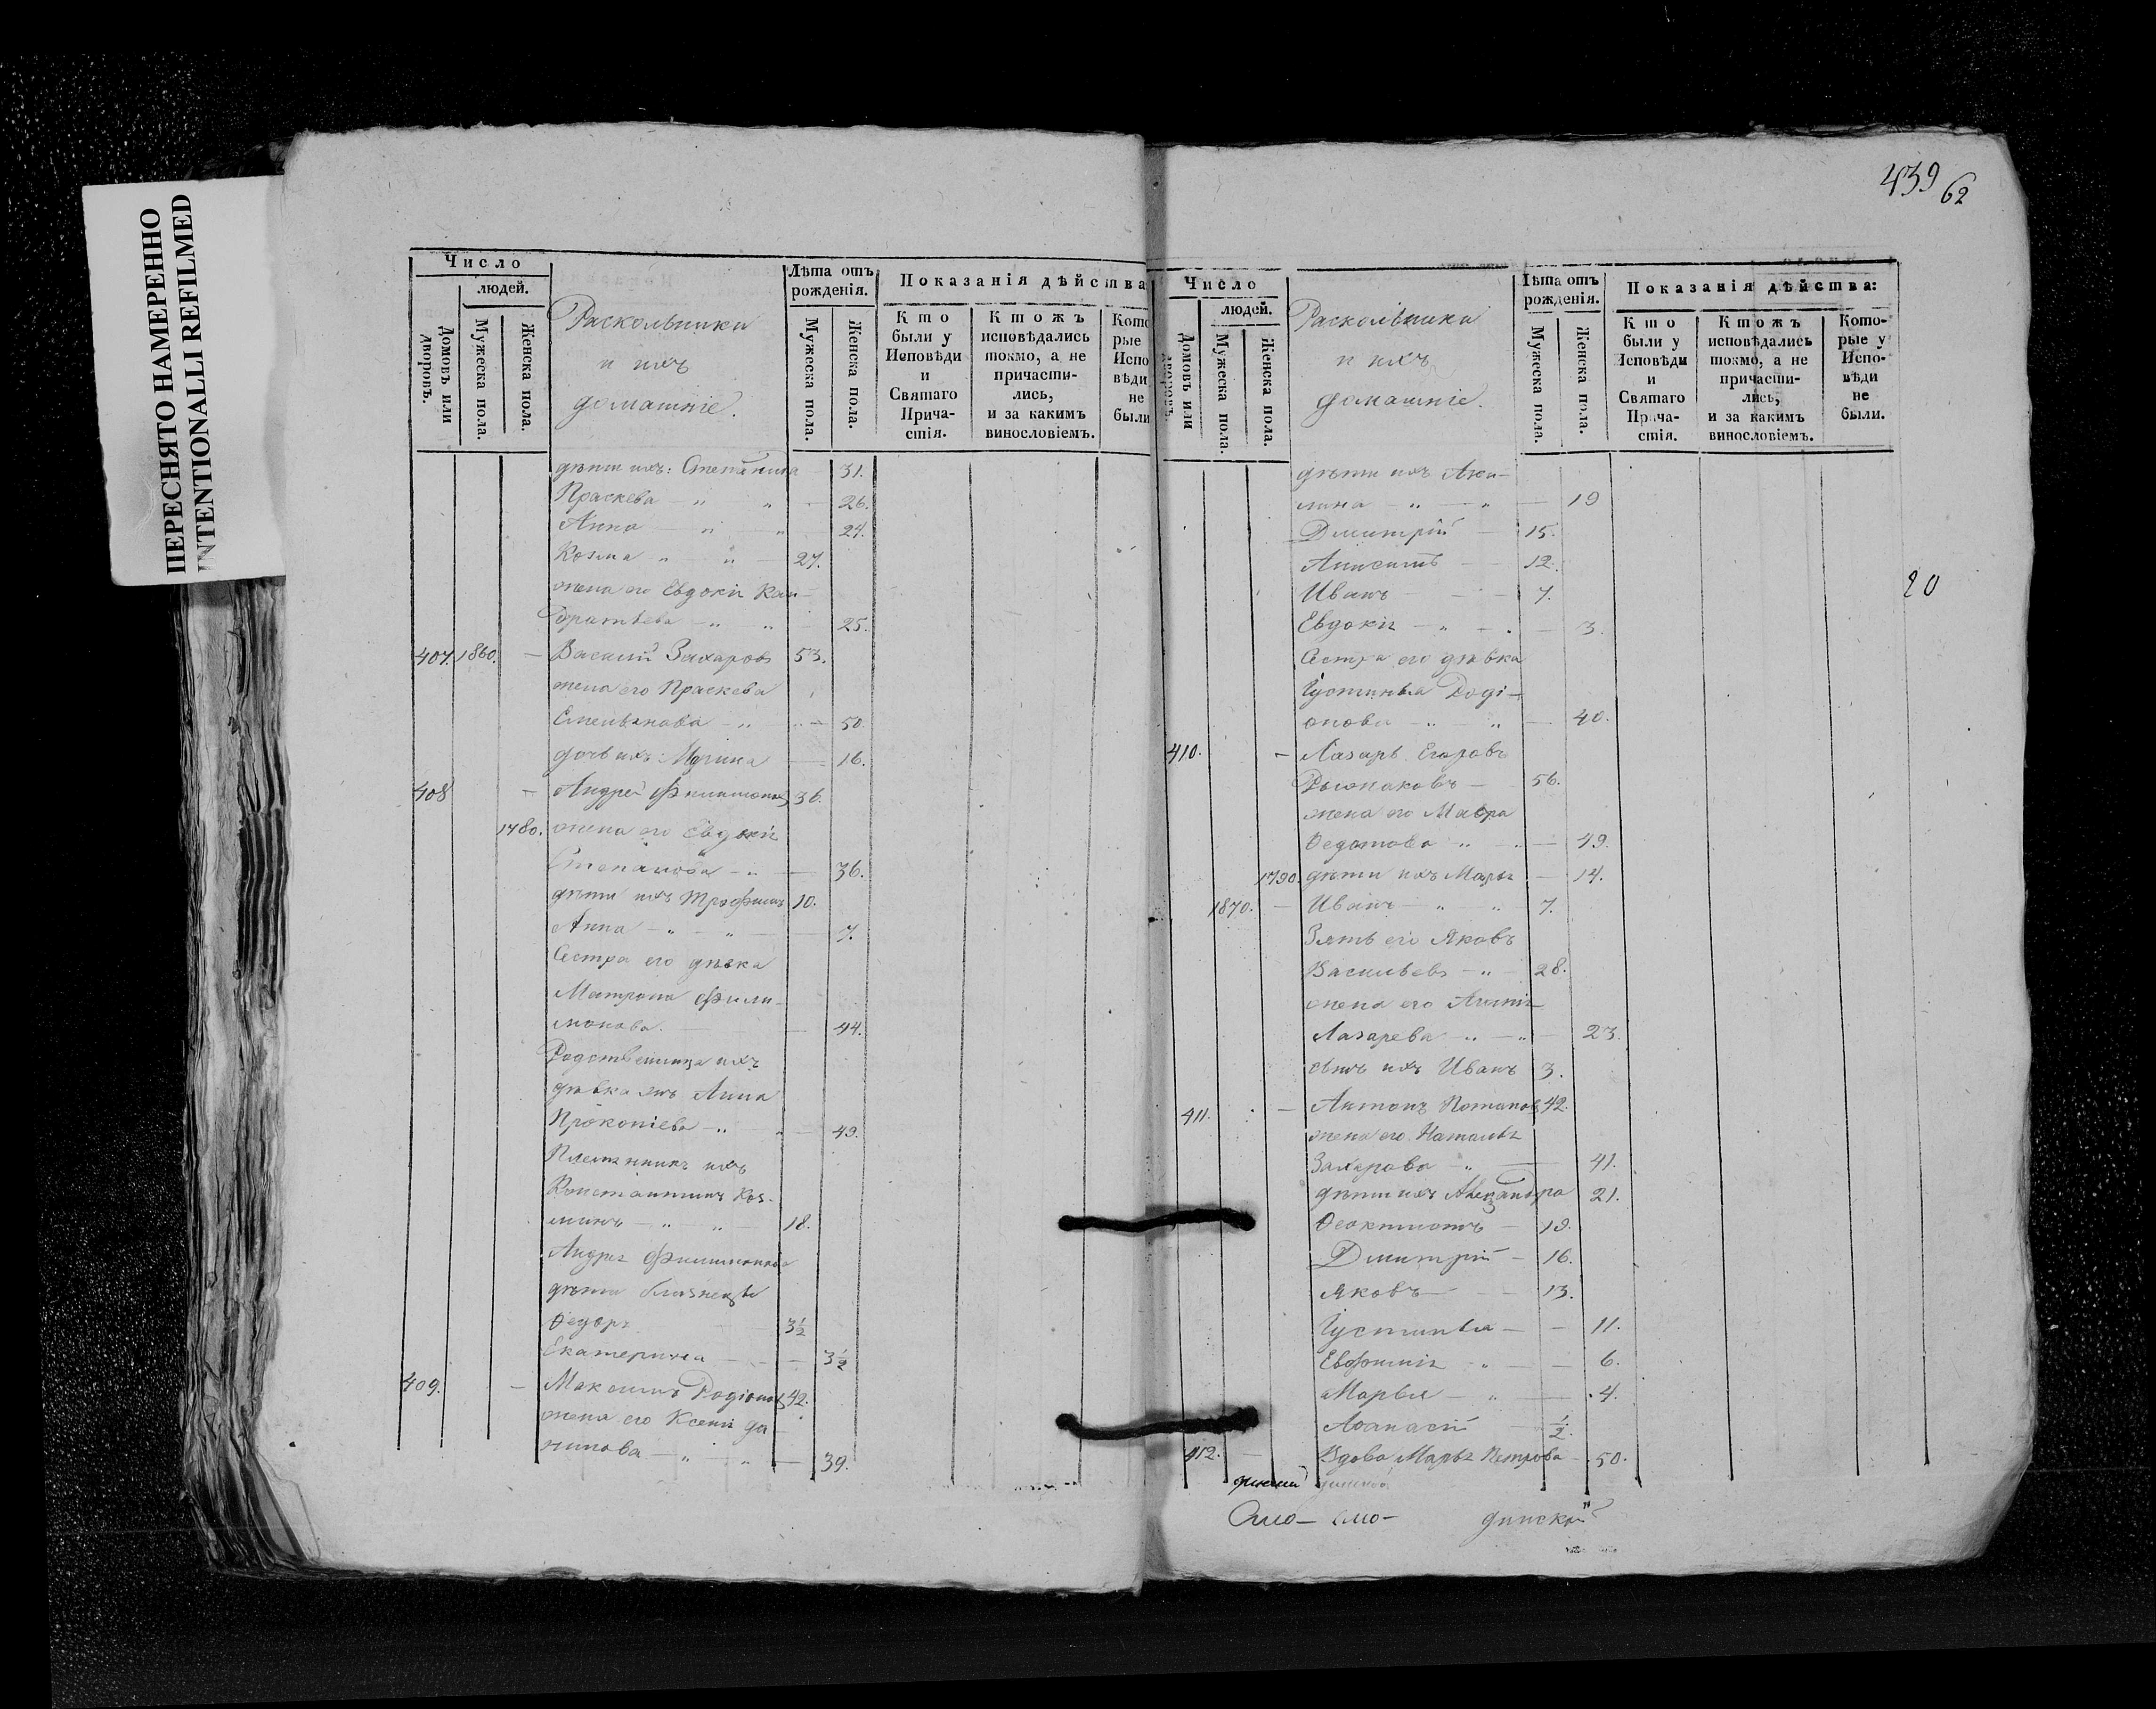 ПЕРЕСНЯТО НАМЕРЕННО
INTENTIONALLI REFILMED
Число
людей.
Домовъ или дворовъ.
Мужеска пола.
Женска пола.
Раскольники
и ихъ
домашніе.
Лѣта отъ рожденія.
Мужеска пола.
Женска пола.
Показанія дѣйства
Кто были у Исповѣди и Святаго Причастія.
Ктожъ исповѣдались токмо, а не причастились, и за какимъ винословіемъ.
Кото рые Испо вѣди не были
дѣти ихъ: Степанида 31.
Праскева 26.
Анна 24.
Козма 27.
жена его Евдокія Кон-
дратьева 25.
407. 1860. Василій Захаровъ 53.
жена его Праскева
Емельянова 50.
дочь ихъ: Ирина 16.
408 Андрей Филимоновъ 36.
1780. жена его Евдокія
Степанова 36.
дѣти ихъ Трофимъ 10.
Анна 7.
Сестра его дѣвка
Матрона Фили-
монова. 44.
Родственница ихъ
дѣвка Анна
Прокопіева 49.
Племянникъ ихъ
Константинъ Коз-
минъ 18.
Андрея Филимонова
дѣти близнецы
Федоръ 3½
Екатерина 3½
409. Максимъ Родіоновъ 42.
жена его Ксенія Да-
нилова 39.
439 62
Число
людей.
Домовъ или дворовъ.
Мужеска пола
Женска пола.
Раскольники
и ихъ
домашніе.
Лѣта отъ рожденія.
Мужеска пола.
Женска пола.
Показанія дѣйства:
Кто были у Исповѣди и Святаго Причастія.
Ктожъ исповѣдались токмо, а не причастились, и за какимъ винословіемъ.
Которые у Исповѣди не были.
дѣти ихъ Аки-
лина 19
Дмитрій 15.
Анисимъ 12.
Иванъ 7.
20
Евдокія 3.
Сестра его дѣвка
Іустинья Роді-
онова 40.
410. Лазарь Егоровъ
56.
жена его Мавра
Федотова 49.
1790. дѣти ихъ Марья 14.
1870. Иванъ 7.
Зять его Яковъ
Васильевъ 28.
жена его
Лазарева 23.
сынъ ихъ Иванъ 3.
411. Антонъ Потаповъ 42.
жена его Наталья
Захарова 41.
дѣти ихъ Александра 21.
Феоктистъ 19.
Дмитрій 16.
Яковъ 13.
Іустинья 11.
Евфимія 6.
Марья 4.
Афанасій ½.
412. Вдова Марья Петрова 50.